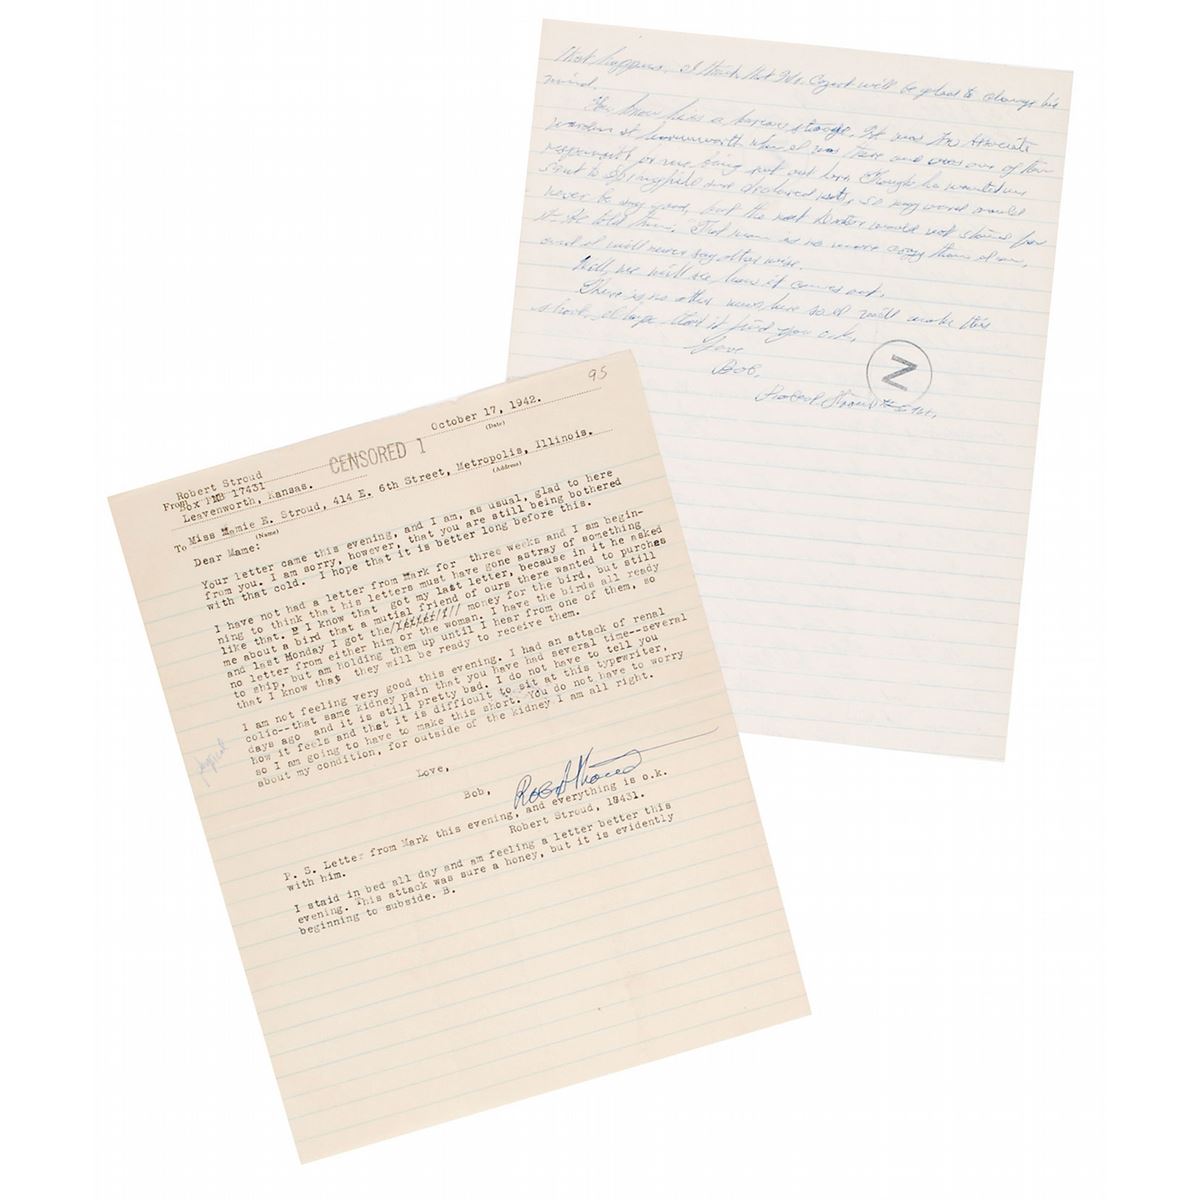 that happens, I think that Mr. will be glad to change his
mind.
You know he is a stooge. He was the Associate
Warden at Leavenworth when I was there and was one of the
responsible for me being put out here. Though he wanted me
sent to Springfield and declared nuts, so my word would
never be any good, but the head Doctor would not stand for
it. He told them, "That man is no more crazy than I am,
and I will never say otherwise.
Well, we will see how it comes out.
There is no other news here so I will make this
short. I hope that it finds you o.k.
Love
Bob.
Robert Stroud
Z
95
October 17, 1942.
(Date)
CENSORED 1
Robert Stroud
From Box PMB 17431
Leavenworth, Kansas.
To Miss Mamie E. Stroud, 414 E. 6th Street, Metropolis, Illinois.
(Name) (Address)
Dear Mame:
Your letter came this evening, and I am, as usual, glad to here
from you. I am sorry, however, that you are still being bothered
with that cold. I hope that it is better long before this.
I have not had a letter from Mark for three weeks and I am begin-
ning to think that his letters must have gone astray of something
like that. I know that got my last letter, because in it he asked
me about a bird that a mutial friend of ours there wanted to purches
and last Monday I got the money for the bird, but still
no letter from either him or the woman. I have the birds all ready
to ship, but am holding them up until I hear from one of them, so
that I know that they will be ready to receive them.
I am not feeling very good this evening. I had an attack of renal
colic--that same kidney pain that you have had several time--several
days ago and it is still pretty bad. I do not have to tell you
how it feels and that it is difficult to sit at this typewriter,
so I am going to have to make this short. You do not have to worry
about my condition, for outside of the kidney I am all right.
Love,
Bob,
Rob Stroud
Robert Stroud, 17431.
P. S. Letter from Mark this evening, and everything is o.k.
with him.
I staid in bed all day and am feeling a letter better this
evening. This attack was sure a honey, but it is evidently
beginning to subside. B.